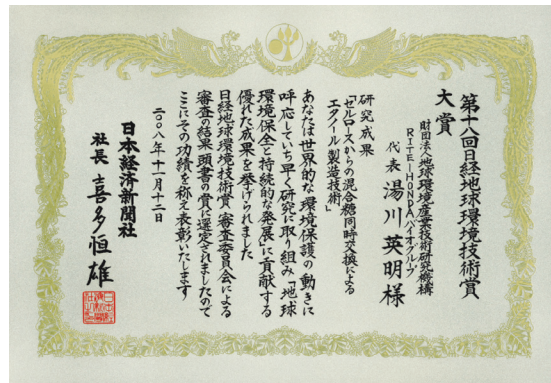 第十八回日経地球環境技術賞
大賞
財団法人地球環境産業技術研究機構
RITE-HONDAバイオグループ
代表 湯川英明様
研究成果
「セルロースからの混合糖同時変換による
エタノール製造技術」
あなたは世界的な環境保護の動きに
呼応していち早く研究に取り組み「地球
環境保全と持続的な発展」に貢献する
優れた成果を挙げられました
日経地球環境技術賞審査委員会による
審査の結果頭書の賞に選定されましたので
ここにその功績を称え表彰いたします
二〇〇八年十一月十二日
日本経済新聞社
社長 喜多恒雄